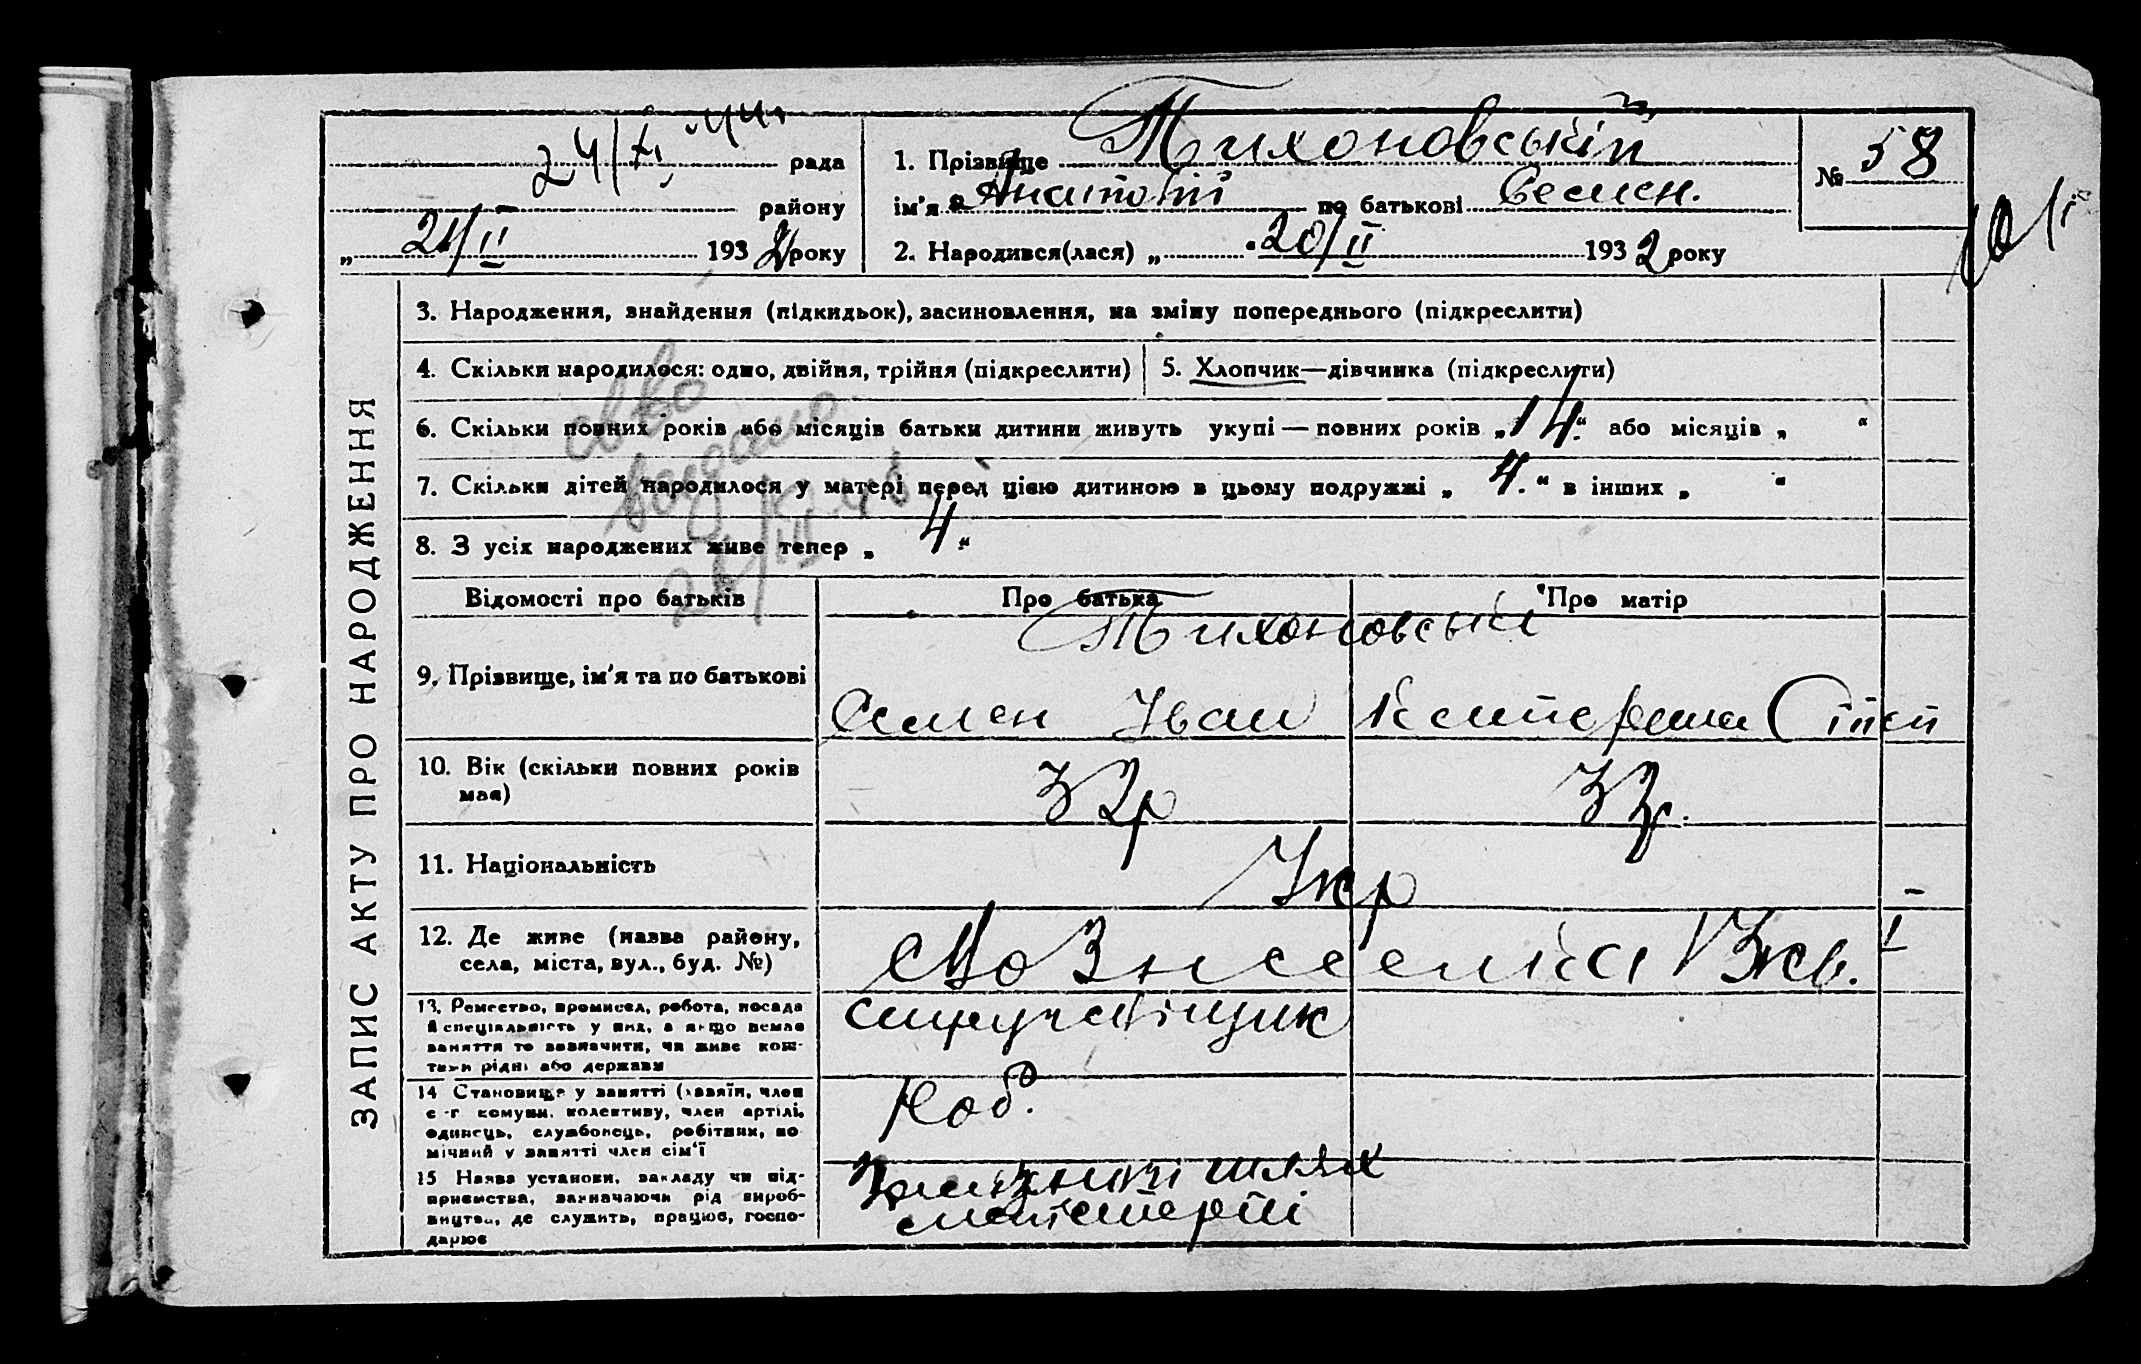 24/XI 44.
рада
района
„ 21/II 1932 року
1. Прізвище Тихоновський
ім'я Анатолій по батькові Семен.
2. Народився(лася) „ 20/II 1932 року
№ 58
ЗАПИС АКТУ ПРО НАРОДЖЕННЯ
3. Народження, знайдення (підкидьок), засиновлення, на зміну попереднього (підкреслити)
4. Скільки народилося: одно, двійня, трійня (підкреслити)
5. Хлопчик—дівчинка (підкреслити)
6. Скільки повних років або місяців батьки дитини живуть укупі — повних років „14.“ або місяців „ “
7. Скільки дітей народилося у матері перед цією дитиною в цьому подружжі „4.“ в інших „ “
8. З усіх народжених живе тепер „4“
Відомості про батьків
Про батька
Про матір
9. Прізвище, ім'я та по батькові
Тихоновські
Семен Іван
Катерина Степ
10. Вік (скільки повних років має)
32р
32р.
11. Національність
Укр
12. Де живе (назва району,
села, міста, вул., буд. №)
13. Ремество, промисел, робота, посада
й спеціяльність у ній, а якщо немає
заняття то зазначити, чи живе кош-
тами рідні або держави
14 Становище у занятті (хазяїн, член
с-г комуни, колективу, член артілі,
одинець, службовець, робітник, по
мічний у занятті член сім'ї
Роб.
15 Назва установи, закладу чи під-
приємства, зазначаючи рід вироб-
ництва, де служить, працює, госпо-
дарює
шлях